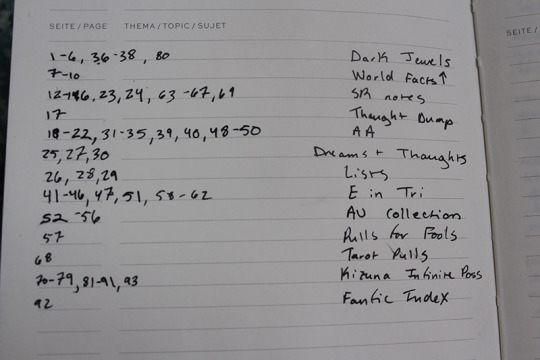 SEITE / PAGE THEMA / TOPIC / SUJET SEITE /
1-6, 36-38, 80 Dark Jewels
7-10 World Facts↑
12-16, 23, 24, 63-67, 69 SR notes
17 Thought Dump
18-22, 31-35, 39, 40, 48-50 AA
25, 27, 30 Dreams + Thoughts
26, 28, 29 Lists
41-46, 47, 51, 58-62 E in Tri
52-56 AU Collection
57 Pulls for Fools
68 Tarot Pulls
70-79, 81-91, 93 Kizuna Infinite Poss
92 Fanfic Index